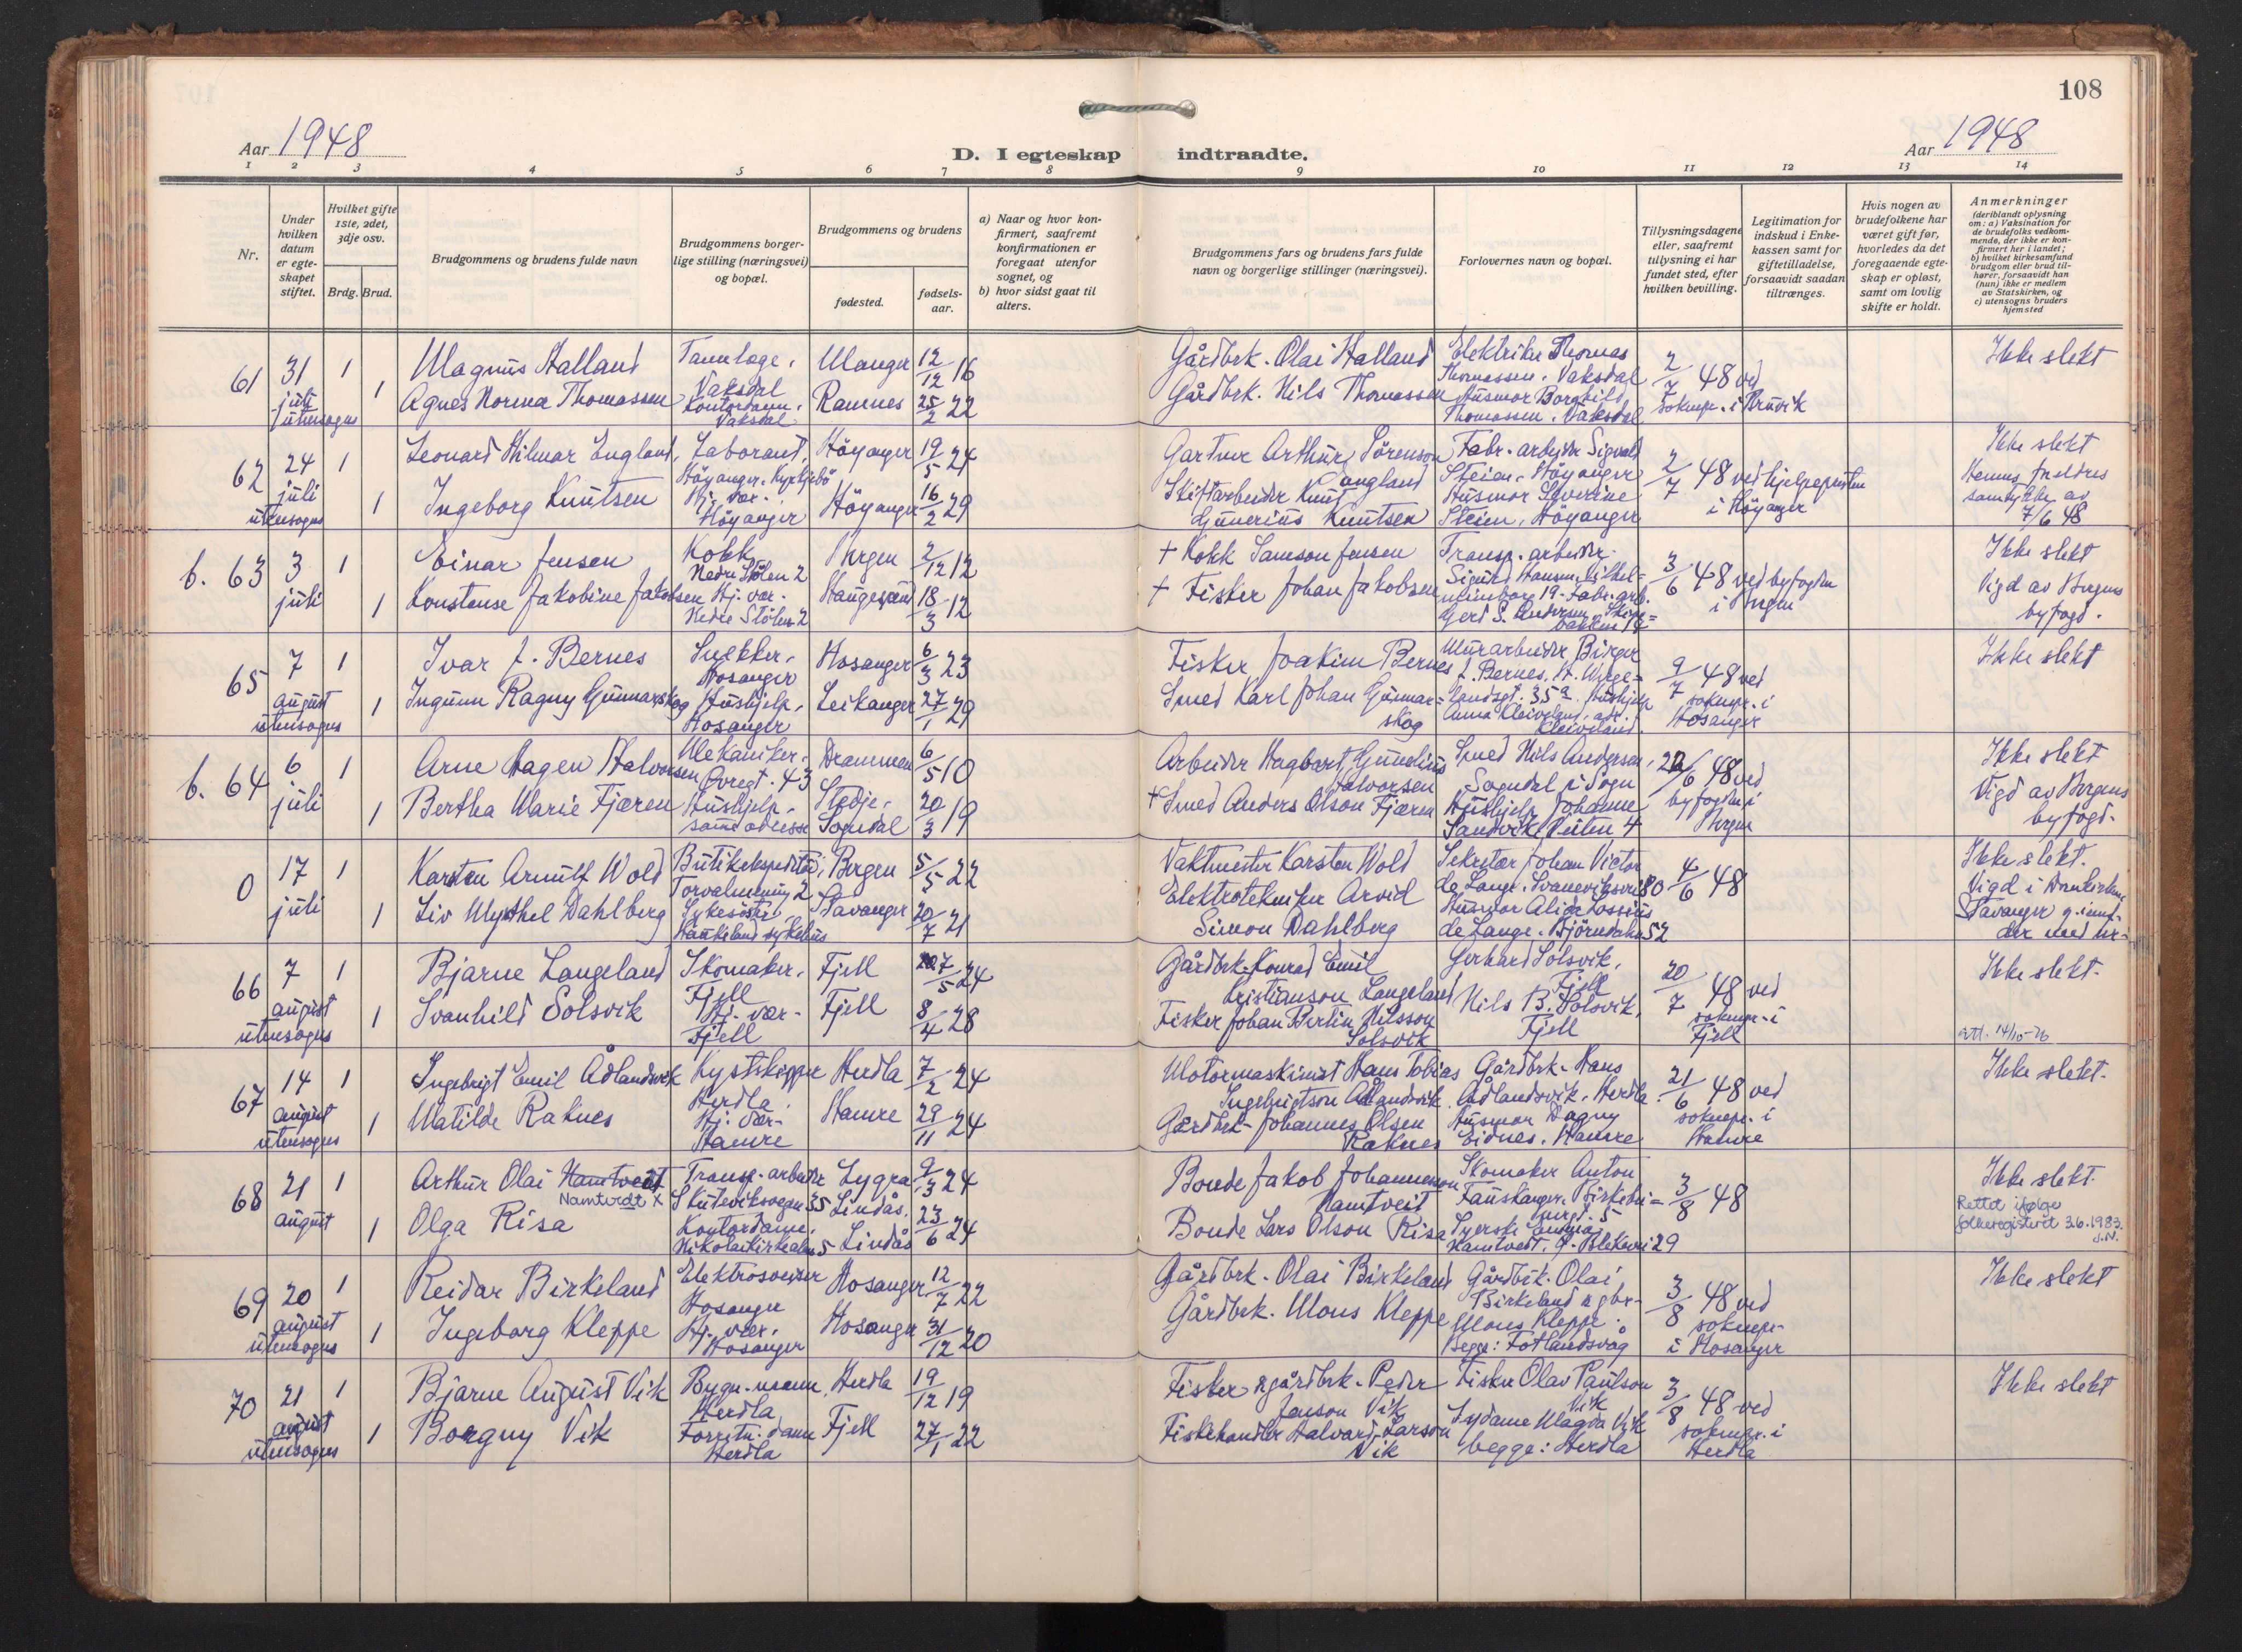 108
Aar 1948
D. I egteskap indtraadte.
Aar 1948
1 2 3 4 5 6 7 8 9 10 11 12 13 14
Nr.
Under hvilken datum er egteskapet stiftet.
Hvilket gifte 1ste, 2det, 3dje osv.
Brdg. Brud.
Brudgommens og brudens fulde navn
Brudgommens borgerlige stilling (næringsvei) og bopæl.
Brudgommens og brudens
fødested.
fødselsaar.
a) Naar og hvor konfirmert, saafremt konfirmationen er foregaat utenfor sognet, og
b) hvor sidst gaat til alters.
Brudgommens fars og brudens fars fulde navn og borgerlige stillinger (næringsvei).
Forlovernes navn og bopæl.
Tillysningsdagene eller, saafremt tillysning ei har fundet sted, efter hvilken bevilling.
Legitimation for indskud i Enkekassen samt for giftetilladelse, forsaavidt saadan tiltrænges.
Hvis nogen av brudefolkene har været gift før, hvorledes da det foregaaende egteskap er opløst, samt om lovlig skifte er holdt.
Anmerkninger (deriblandt oplysning om: a) Vaksination for de brudefolks vedkommende, der ikke er konfirmert her i landet; b) hvilket kirkesamfund brudgom eller brud tilhører, forsaavidt han (hun) ikke er medlem av Statskirken, og c) utensogns bruders hjemsted
61 31 juli utensogns 1 Magnus Halland Tannlæge, Vaksdal Manger 12/12 16 Gårdbrk. Olai Halland Elektriker Thomas Thomassen, Vaksdal 2/7 48 ved soknepr. i Bruvik Ikke slekt
1 Agnes Norma Thomassen Kontordame, Vaksdal Ramnes 25/2 22 Gårdbrk. Nils Thomassen Husmor Borghild Thomassen, Vaksdal
62 24 juli utensogns 1 Leonard Hilmar England, Laborant, Höyanger, Kyrkjebö Höyanger 19/5 24 Gartner Arthur Sörenson England Fabr. arbeider Sigvald Steien, Höyanger 2/7 48 ved hjelpepresten i Höyanger Ikke slekt Hennes foreldres samtykke av 7/6 48
1 Ingeborg Knutsen Hj. vær. Höyanger Höyanger 16/2 29 Skiftarbeider Knut Gunerius Knutsen Husmor Severine Steien, Höyanger
b. 63 3 juli 1 Einar Jensen Kokk Nedre Stölen 2 Bergen 2/12 12 + Kokk Samson Jensen Transp. arbeider Sigurd Hansen, 3/6 48 ved byfogden i Bergen Ikke slekt Vigd av Bergens byfogd.
1 Konstanse Jakobine Jakobsen Hj. vær. Nedre Stölen 2 Haugesund 18/3 12 + Fisker Johan Jakobsen Fabr. arb. Gerd S. Andersen,
65 7 august utensogns 1 Ivar J. Bernes Snekker, Hosanger Hosanger 6/3 23 Fisker Joakim Bernes Murarbeider Birger J. Bernes, 9/7 48 ved soknepr. i Hosanger Ikke slekt
1 Ingunn Ragny Gunnarskog Hushjelp, Hosanger Leikanger 27/1 29 Smed Karl Johan Gunnarskog Hushjelp Anna Kleiveland, adr. Kleiveland.
b. 64 6 juli 1 Arne Hagen Halvorsen Mekaniker, Øvregt. 43 Drammen 6/5 10 Arbeider Hagbart Gunelius Halvorsen Smed Nils Andersen, Sogndal i Sogn /6 48 ved byfogden i Bergen Ikke slekt Vigd av Bergens byfogd.
1 Bertha Marie Fjæren Hushjelp, samme adresse Stedje, Sogndal 20/3 19 + Smed Anders Olson Fjæren Hushjelp Johanne Sandvik, 4
0 17 juli 1 Karsten Arnulf Wold Butikekspeditör, Torvalmenning 2 Bergen 5/5 22 Vaktmester Karsten Wold Sekretær Johan Victor de Lange, Svaneviksvei 80 4/6 48 Ikke slekt. Vigd i Domkirken Stavanger
1 Liv Myrthel Dahlberg Sykesöster, Haukeland sykehus Stavanger 20/7 21 Elektrotekniker Arvid Simon Dahlberg Husmor Alida Lossius de Lange, Björndalen 52
66 7 august utensogns 1 Bjarne Langeland Skomaker, Fjell Fjell 7/5 24 Gårdbrk. Konrad Emil Kristianson Langeland Gerhard Solsvik, Fjell 20/7 48 ved soknepr. i Fjell Ikke slekt.
1 Svanhild Solsvik Hj. vær. Fjell Fjell 8/4 28 Fisker Johan Berlin Nilsson Solsvik Nils B. Solsvik, Fjell att. 14/10-76
67 14 august utensogns 1 Ingebrigt Emil Ådlandsvik Kystskipper Herdla, Herdla 7/2 24 Motormaskinist Hans Tobias Ingebrigtson Ådlandsvik Gårdbrk. Hans Ådlandsvik, Herdla. 21/6 48 ved soknepr. i Hamre Ikke slekt.
1 Matilde Raknes Hj. vær. Hamre Hamre 29/11 24 Gårdbrk. Johannes Olsen Raknes Husmor Dagny Eidnes, Hamre
68 21 august 1 Arthur Olai Namtvedt Namtvedt x Transp. arbeider Skuteviksvegen 35 Lygra Lindås, 9/3 24 Bonde Jakob Johannesson Namtveit Skomaker Anton Fauskanger, 3/8 48 Ikke slekt. Rettet ifølge folkeregisteret 3.6.1983. J.N.
1 Olga Risa Kontordame, Nikolaikirkealm. 5 Lindås 23/6 24 Bonde Lars Olson Risa Syerske Namtvedt, 29
69 20 august utensogns 1 Reidar Birkeland Elektrosveiser Hosanger Hosanger 12/7 22 Gårdbrk. Olai Birkeland Gårdbrk. Olai Birkeland og Mons Kleppe. Begge: Fotlandsvåg 3/8 48 ved soknepr. i Hosanger Ikke slekt
1 Ingeborg Kleppe Hj. vær. Hosanger Hosanger 31/12 20 Gårdbrk. Mons Kleppe
70 21 august utensogns 1 Bjarne August Vik Bygn. mann, Herdla Herdla 19/12 19 Fisker & gårdbrk. Peder Jenson Vik Fisker Olav Paulson Vik 3/8 48 ved soknepr. i Herdla Ikke slekt
1 Borgny Vik Forretn. dame Herdla Fjell 27/1 22 Fiskehandler Halvard Larson Vik Sydame Magda Vik begge: Herdla